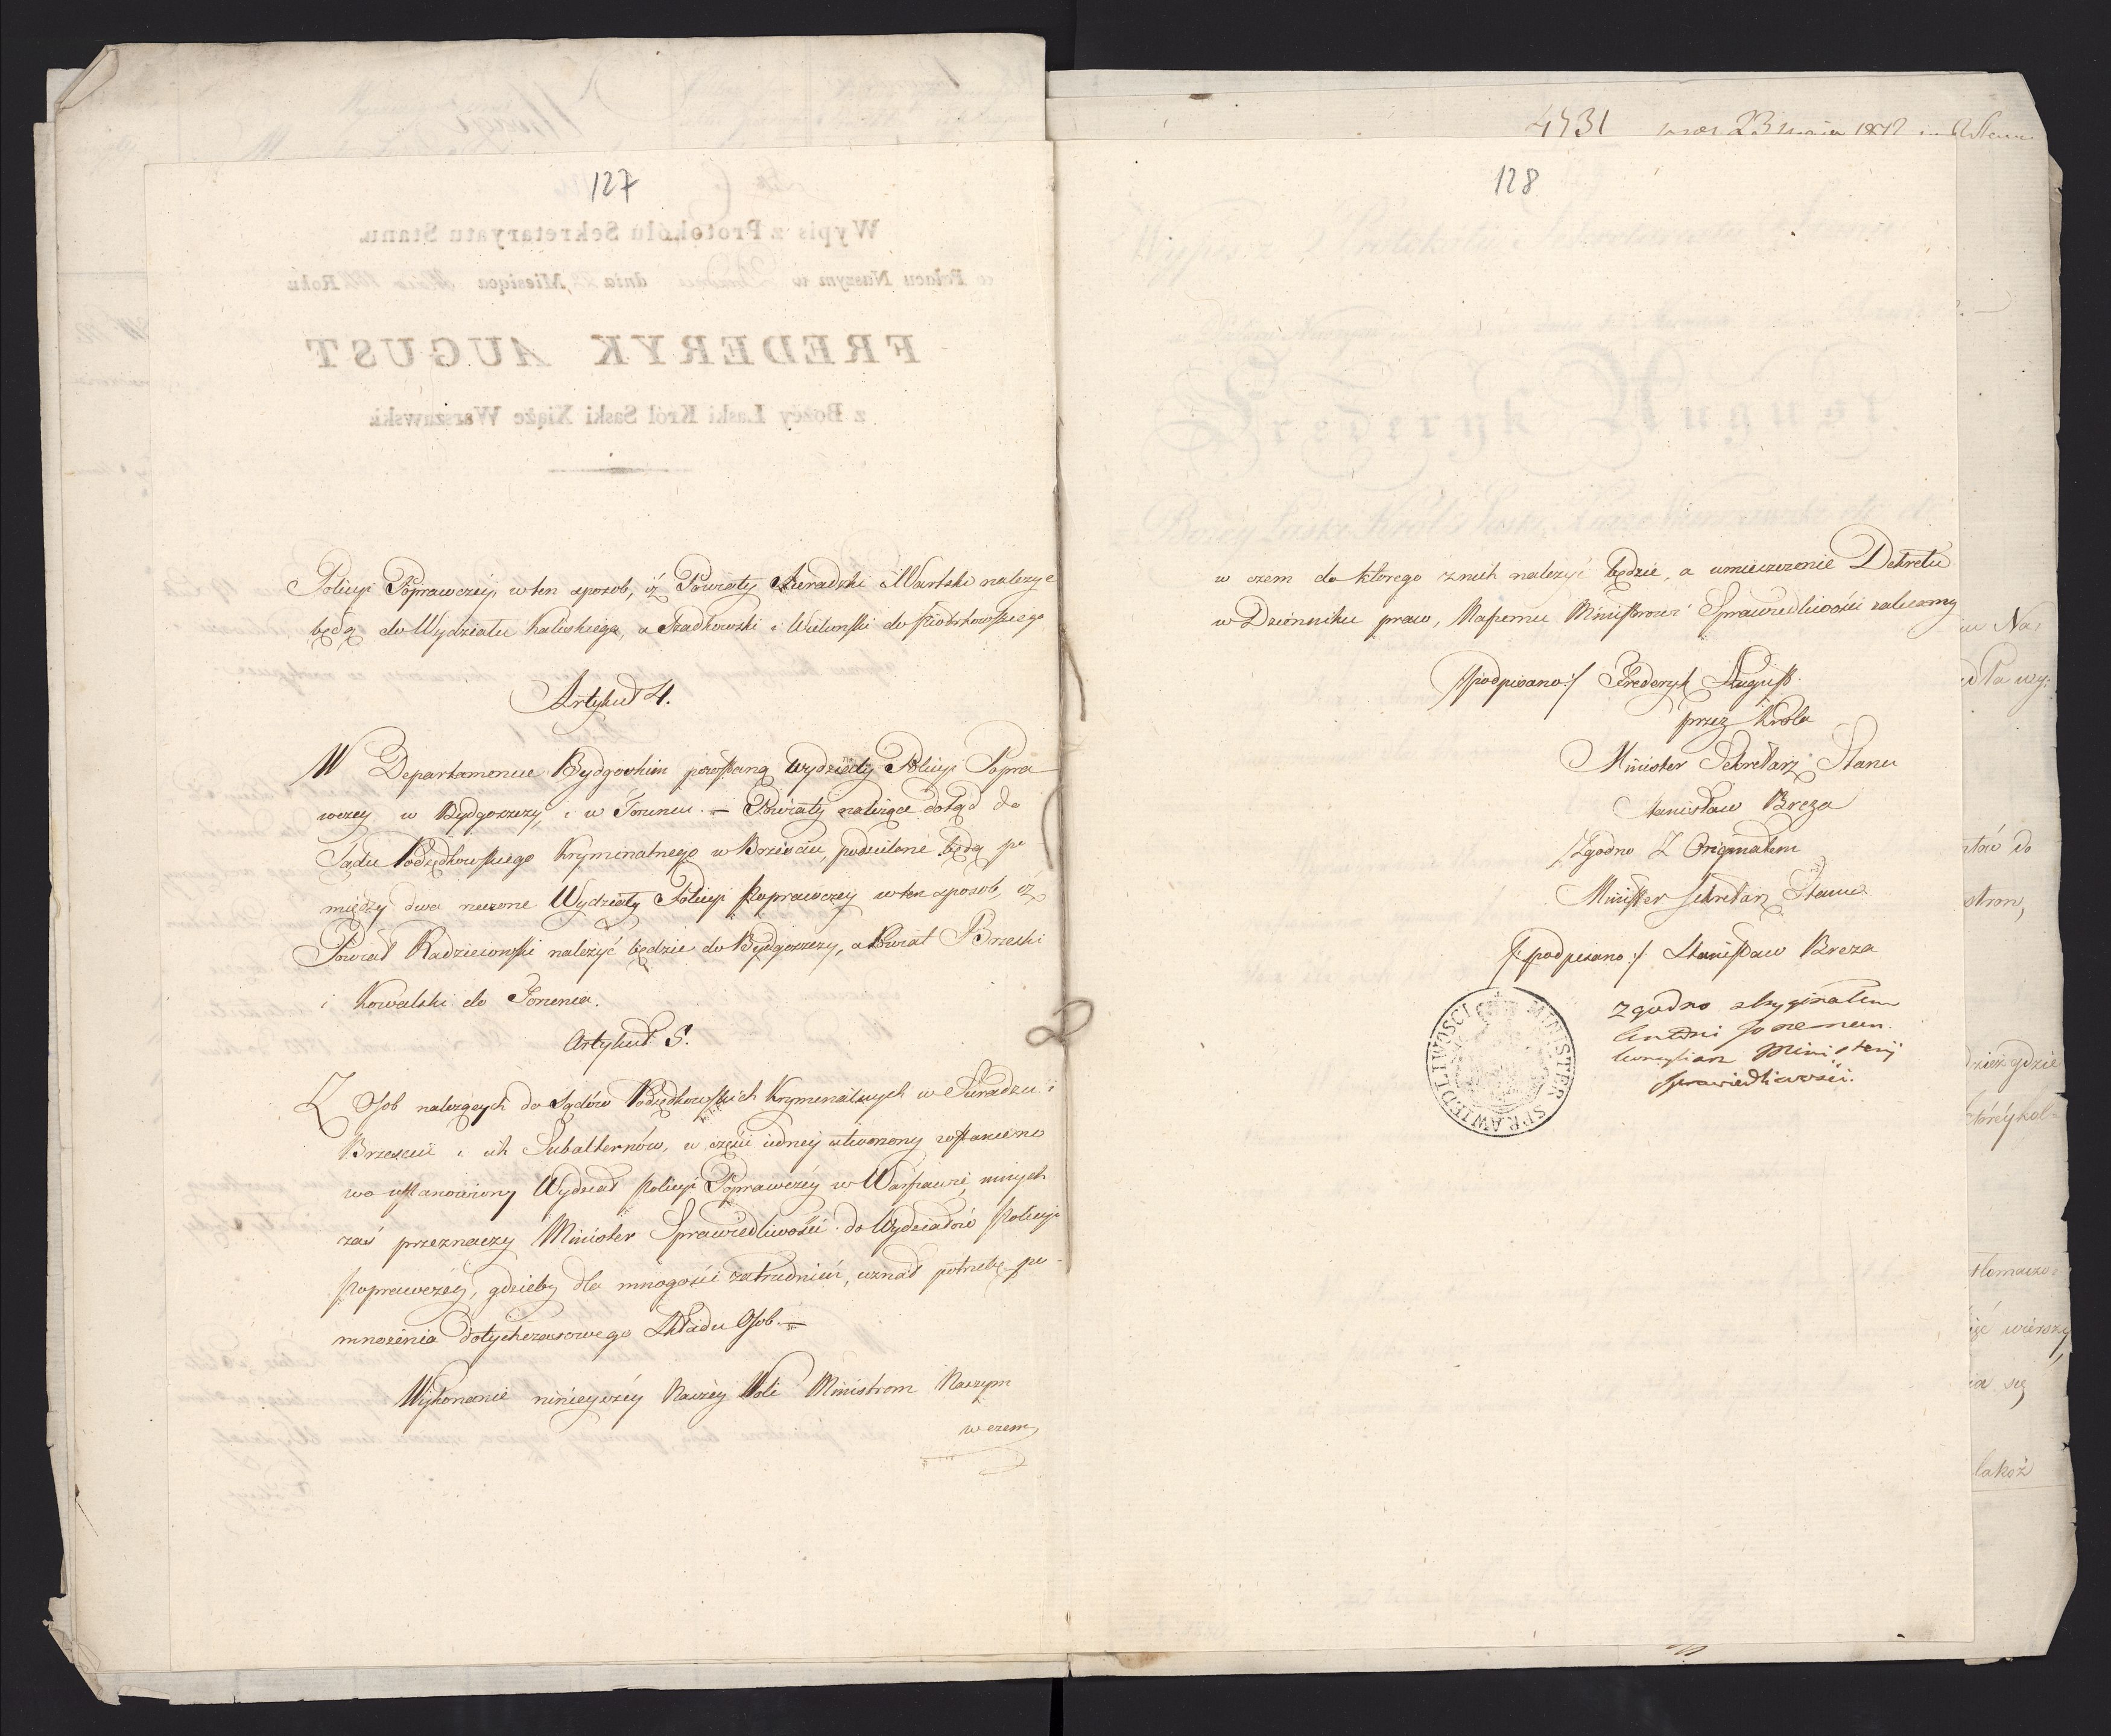 127
Policyi Poprawczéy, w ten sposob, iż Powiaty Sieradzki i Wartski należyć
będą do Wydziału Kaliskiego, a Szadkowski i Wieluński do Piotrkowskiego
Artykuł 4.
W Departamencie Bydgoskim pozostaną Wydziały Policyi Popra
wczey w Bydgoszczy, i w Toruniu. — Powiaty należące dotąd do
Sądu Podsędkowskiego Kryminalnego w Brześciu, podzielone będą po
między dwa rzeczone Wydziały Policyi Poprawczey w ten sposob, iż
Powiat Radzieiowski należyć będzie do Bydgoszczy, a Powiat Brzeski
i Kowalski do Torunia.
Artykuł 5.
Z Osob należących do Sądów Podsędkowskich Kryminalnych w Sieradzu i
Brześciu i ich Subalternów, w części iedney utworzony zostanie no
wo ustanowiony Wydział Policyi Poprawczéy w Warszawie, innych
zaś przeznaczy Minister Sprawiedliwości do Wydziałów Policyi
Poprawczéy, gdzieby dla mnogości zatrudnień, uznał potrzebę po-
mnożenia dotychczasowego Składu Osob. —
Wykonanie ninieyszéy Naszéy Woli Ministrom Naszym
w czem
4431 23 maia 1812
128
w czem do ktorego z nich należyć będzie, a umieszczenie Dekretu
w Dzienniku praw, Naszemu Ministrowi Sprawiedliwości zalecamy
/:podpisano:/ Frederyk August.
przez Króla
Minister Sekretarz Stanu
Stanisław Breza
Zgodno Z Originałem
Minister Sekretarz Stanu
/:podpisano:/ Stanisław Breza
Zgodno z Oryginałem
Ministerij
Sprawiedliwości.
MINISTER SPRAWIEDLIWOSCI